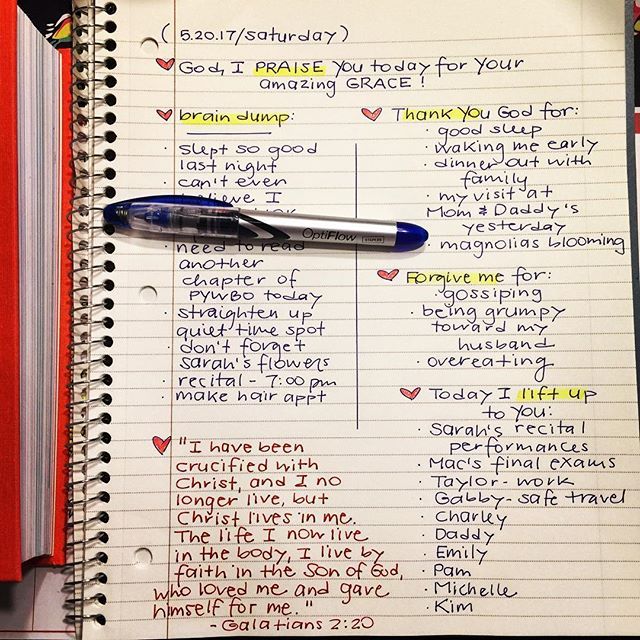 ( 5.20.17/saturday )
God, I PRAISE You today for Your
amazing GRACE !
brain dump:
· slept so good
last night
· can't even
believe I
OptiFlow
· need to read
another
chapter of
PYWBO today
· straighten up
quiet time spot
· don't forget
Sarah's flowers
· recital - 7:00 pm
· make hair appt
Thank You God for:
· good sleep
· waking me early
· dinner out with
family
· my visit at
Mom & Daddy's
yesterday
· magnolias blooming
Forgive me for:
· gossiping
· being grumpy
toward my
husband
· overeating
Today I lift up
to You:
· Sarah's recital
performances
· Mac's final exams
· Taylor - work
· Gabby - safe travel
· Charley
· Daddy
· Emily
· Pam
· Michelle
· Kim
"I have been
crucified with
Christ, and I no
longer live, but
Christ lives in me.
The life I now live
in the body, I live by
faith in the Son of God,
who loved me and gave
himself for me."
- Galatians 2:20